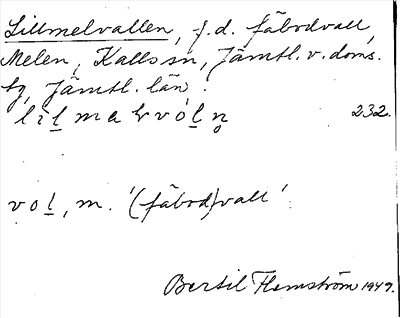 Lillmelvallen, f.d. fäbodvall,
Melen, Kalls sn, Jämtl. v. doms.
hg, Jämtl. län.
232.
vol, m. '(fäbod)vall'
Bertil Flemström 1949.